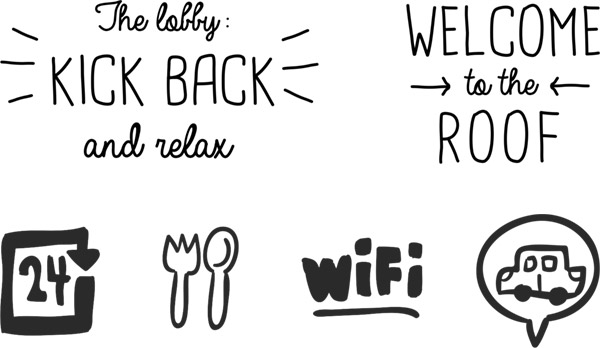 The lobby:
KICK BACK
and relax
WELCOME
to the
ROOF
24
WiFi